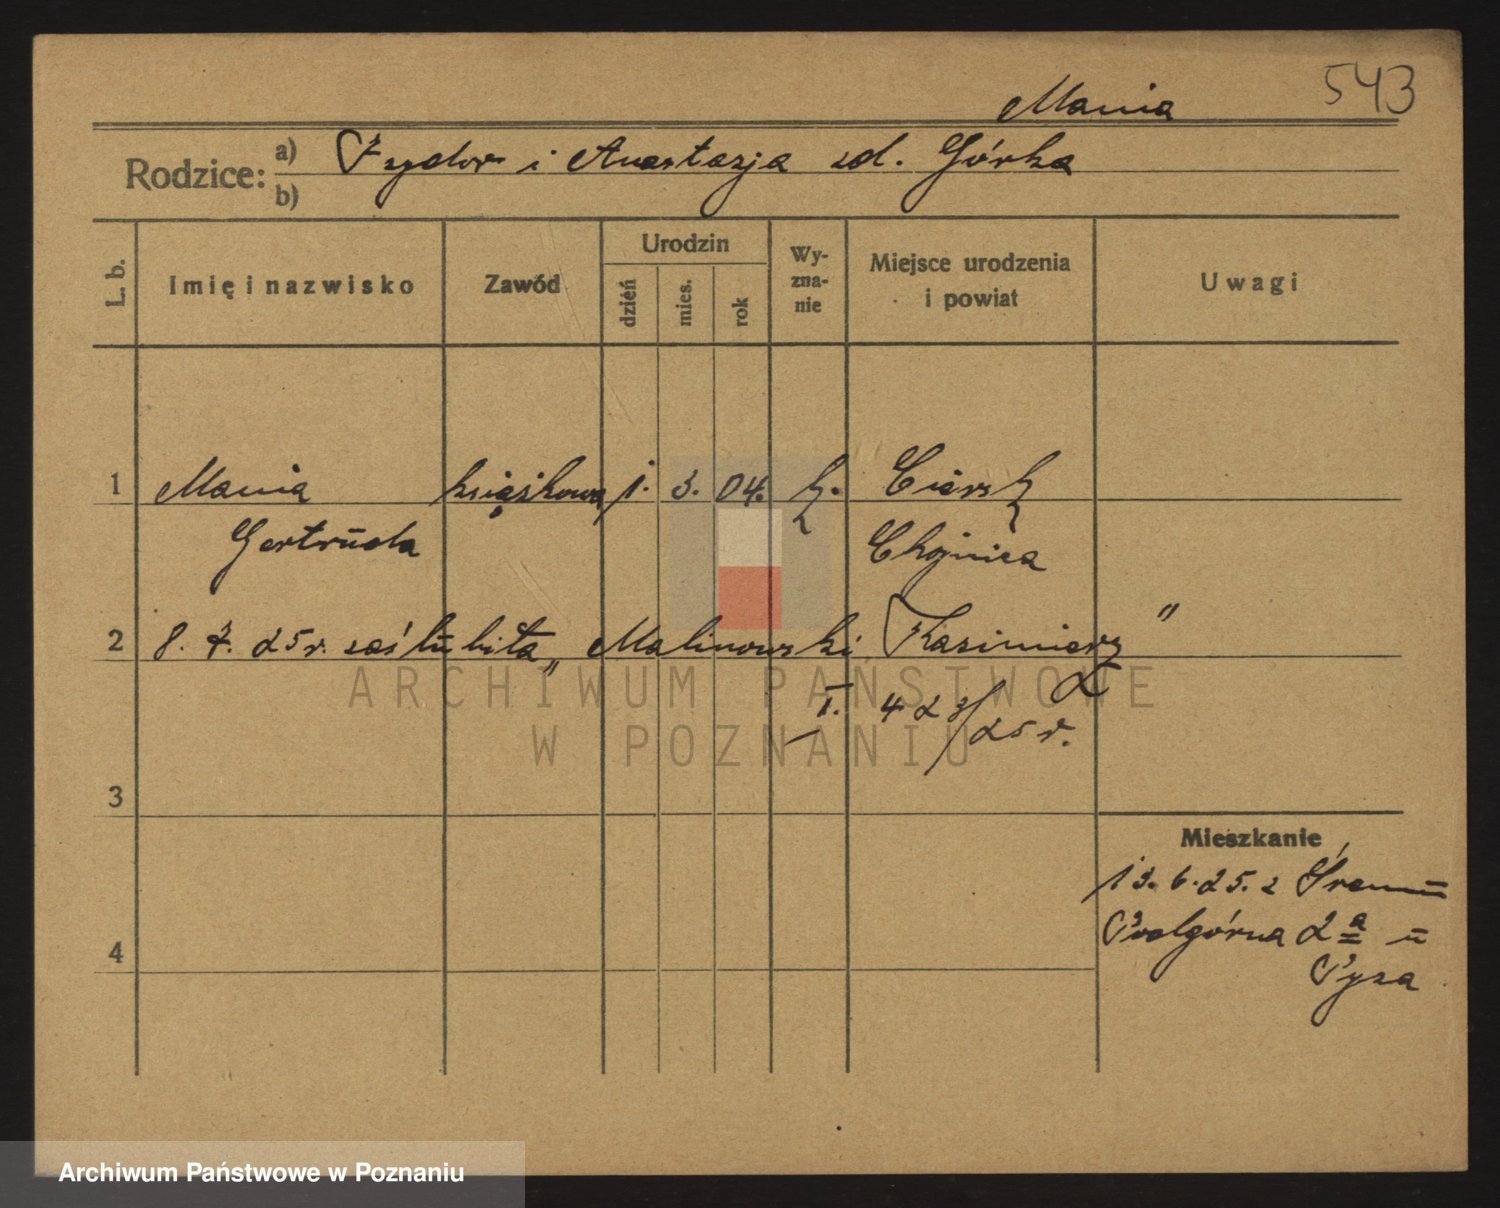 543
Mania
Rodzice: a) Izydor i Anastazja zd. Górka
b)
L. b. Imię i nazwisko Zawód Urodzin dzień mies. rok Wyznanie Miejsce urodzenia i powiat Uwagi
1 Mania książkowa 1. 3. 04. k. Ciersk
Gertruda Chojnica
2 8. 7. 25 r. zaślubiła „Malinowski Kazimierz”
I. 423/25 r.
3
Mieszkanie
13. 6. 25. z Śremu
4 Podgórna 2a u
Pyza
ARCHIWUM PAŃSTWOWE
W POZNANIU
Archiwum Państwowe w Poznaniu